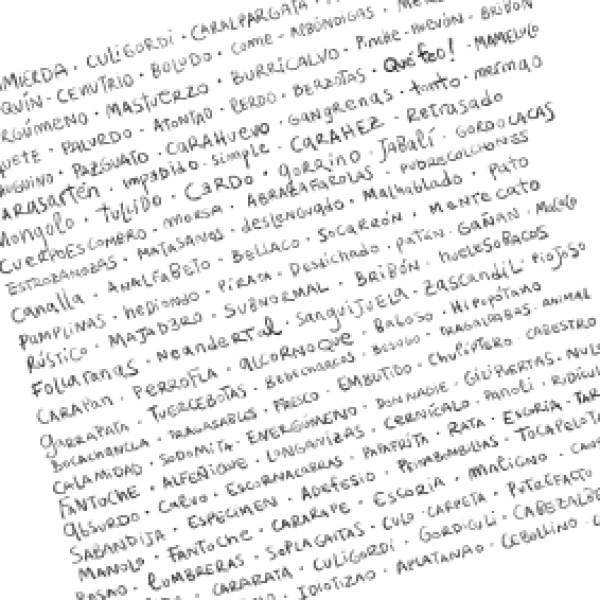 MIERDA · CULIGORDI · CARALPARGATA
CENUTRIO · BOLUDO · come - ALBÓNDIGAS
MASTUERZO · BURRICALVO · Pinche-huevón · BRIBÓN
PALURDO · ATONTAO · LERDO · BERZOTAS · Qué feo! · MAMELUCO
PAZGUATO · CARAHUEVO · GANGRENAS · tonto · mermao
impedido · simple · CARAHEZ · Retrasado
Mongolo · TULLIDO · CARDO · gorrino · JABALÍ · GORDO CACAS
CUERPOESCOMBRO · morsa · ABRAZAFAROLAS · PUDRECOLCHONES
ESTROZANOBAS · MATASANOS · deslenguado · Malhablado · pato
canalla · ANALFABETO · BELLACO · SOCARRÓN · MANTECATO
PAMPLINAS · hediondo · PIRATA · Desdichado · patán · GAÑAN
RÚSTICO · MAJAD3RO · SUBNORMAL · BRIBÓN · hueleSOBACOS
FOLLARANAS · Neandertal · sanguijuela · Zascandil · PIOJOSO
CARAPAN · PERROFLA · alcornoque · Baboso · HIPOPÓTAMO
garrapata · TUERCEBOTAS · Bebecharcos · BESUGO · TRAGALDABAS · ANIMAL
BOCACHANCLA · TRAGASABLES · FRESCO · EMBUTIDO · CHULIPTERO · CABESTRO
CALAMIDAD · SODOMITA · ENERGÚMENO · DON NADIE · GILIPUERTAS
FANTOCHE · ALFEÑIQUE · LONGANIZAS · CERNÍCALO · PANOLI
ABSURDO · CALVO · ESCORNACABRAS · PAPAFRITA · RATA · ESCORIA
SABANDIJA · ESPECIMEN · ADEFESIO · PEINABOMBILLAS · TOCAPELOTAS
MANOLO · FANTOCHE · CARARAPE · ESCORIA · MALIGNO
LUMBRERAS · SOPLAGAITAS · CULO-CARPETA · PUTREFACTO
CARARATA · CULIGORDI · GORDICULI
IDIOTIZAO · APLATANAO · CEBOLLINO